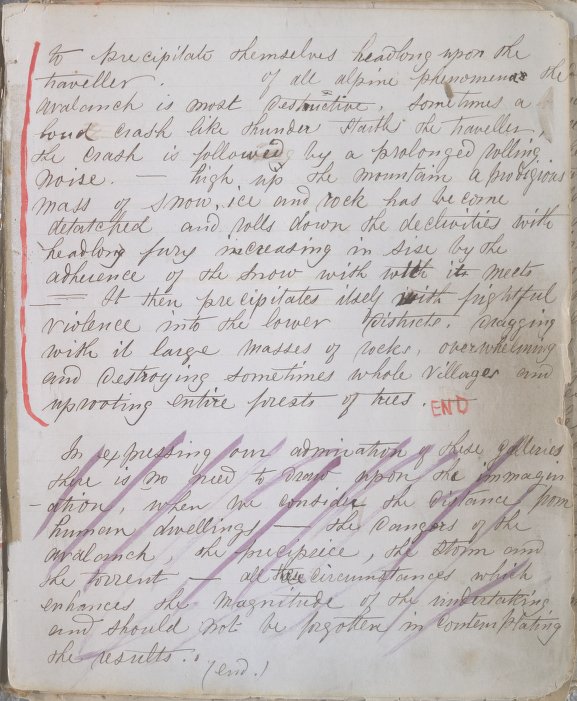 to precipitate themselves headlong upon the
traveller. of all alpine phenomena the
avalanch is most destructive, sometimes a
loud crash like thunder startls the traveller,
the crash is followed by a prolonged rolling
noise. — high up the mountain a prodigious
mass of snow, ice and rock has become
detatched and rolls down the declivities with
headlong fury increasing in sise by the
adherence of the snow with with it meets
— It then precipitates itself with frightful
violence into the lower districts. dragging
with it large masses of rocks, overwhelming
and destroying sometimes whole villages and
uprooting entire forests of trees. —
END
In expressing our admiration of these galleries
there is no need to draw upon the immagin
-ation, when we consider the distance from
human dwellings — the dangers of the
avalanch, the precipeice, the storm and
the torrent — all these circumstances which
enhances the magnitude of the undertaking
and should not be forgotten in contemplating
the results..
(end.)